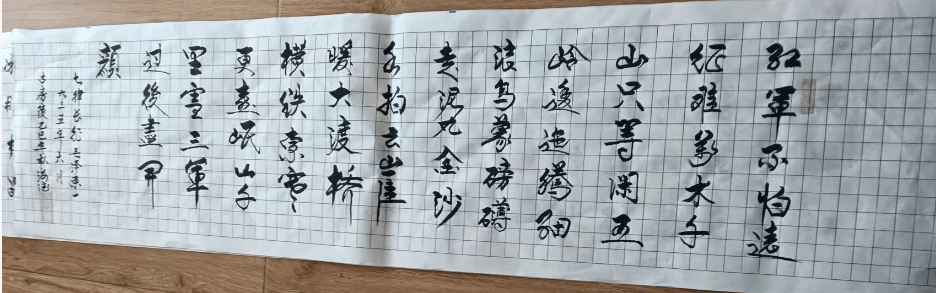 红軍不怕遠
征難萬水千
山只等闲五
岭逶迤騰细
浪乌蒙磅礴
走泥丸金沙
水拍云崖
暖大渡桥
横铁索寒
更喜岷山千
里雪三軍
过後盡开
顏
七律长征 毛泽东一
九三五年六月
乙巳年秋